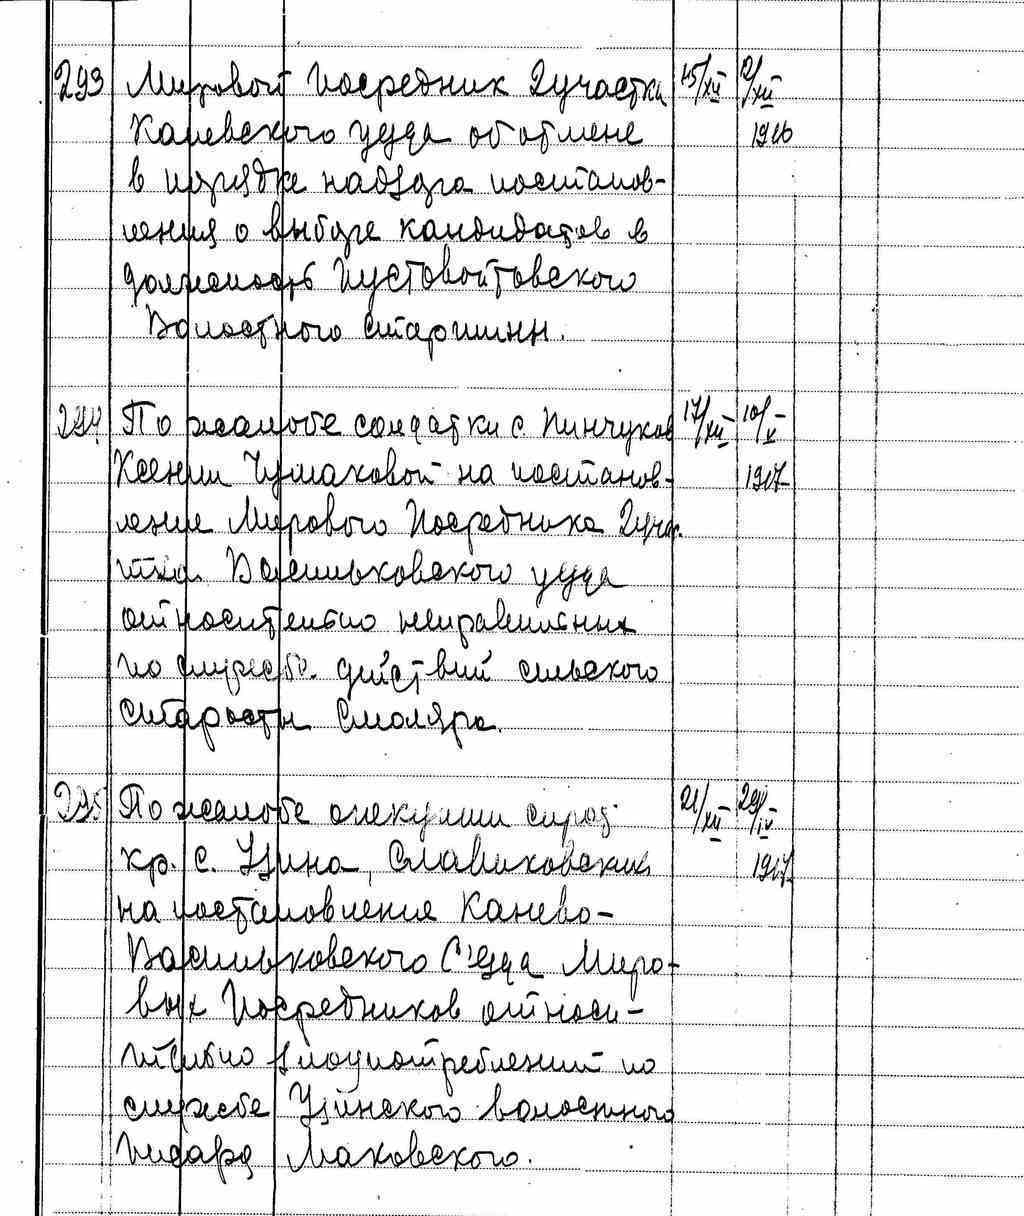 293 Мировой Посредник 2 участка 15/XII 12/XII
Каневского уезда об отмене 1916
в порядке надзора постанов-
ления о выборе кандидатов в
должность Пустовойтовского
Волостного старшины.
294 По жалобе солдатки с. Пинчуков 17/XII 10/X
Ксении Чумаковой на постанов- 1917
ление Мирового Посредника 2 учас
тка Васильковского уезда
относительно неправильных
по службе действий сельского
старосты Смоляра.
295 По жалобе опекунши сирот 21/XII 29/IV
кр. с. Узина, Славиковских 1917
на постановления Канево-
Васильковского С'езда Миро-
вых Посредников относи-
тельно злоупотреблений по
службе Узинского волостного
писаря Маковского.